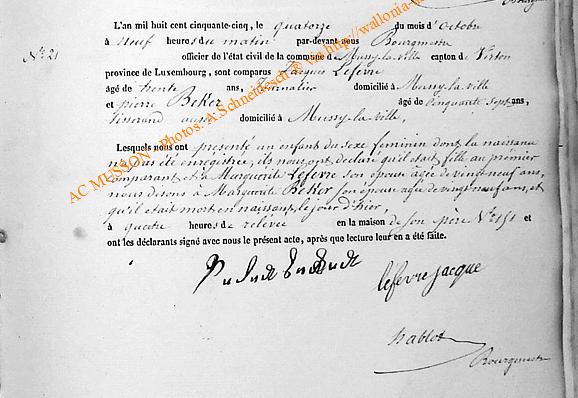 L'an mil huit cent cinquante-cinq, le quatorze du mois d'Octobre
à neuf heures du matin par-devant nous Bourgmestre
Nº 21 officier de l'état civil de la commune de Mussy-la-ville canton de Virton
province de Luxembourg, sont comparus Jacques Lefevre
âgé de trente ans, Journalier domicilié à Mussy-la-ville
et pierre Beker âgé de Cinquante Sept ans,
tisserand aussi domicilié à Mussy-la-ville,
Lesquels nous ont présenté un enfant du sexe feminin dont la naissance
n'a pas été enregistrée, ils nous ont declaré qu'il etait fille au premier
comparant et à Marguerite Lefevre son épouse agée de vingt neuf ans,
nous disons à Marguerite Beker son épouse agée de vingt neuf ans, et
qu'il etait mort en naissant, le jour d'hier,
à quatre heures de relevée en la maison de son père Nº 151 et
ont les déclarants signé avec nous le présent acte, après que lecture leur en a été faite.
lefevre jacque
hablot
Bourgmestre
AC MUSSON - Photos: A.Schneidesch @ via http://wallonia-w